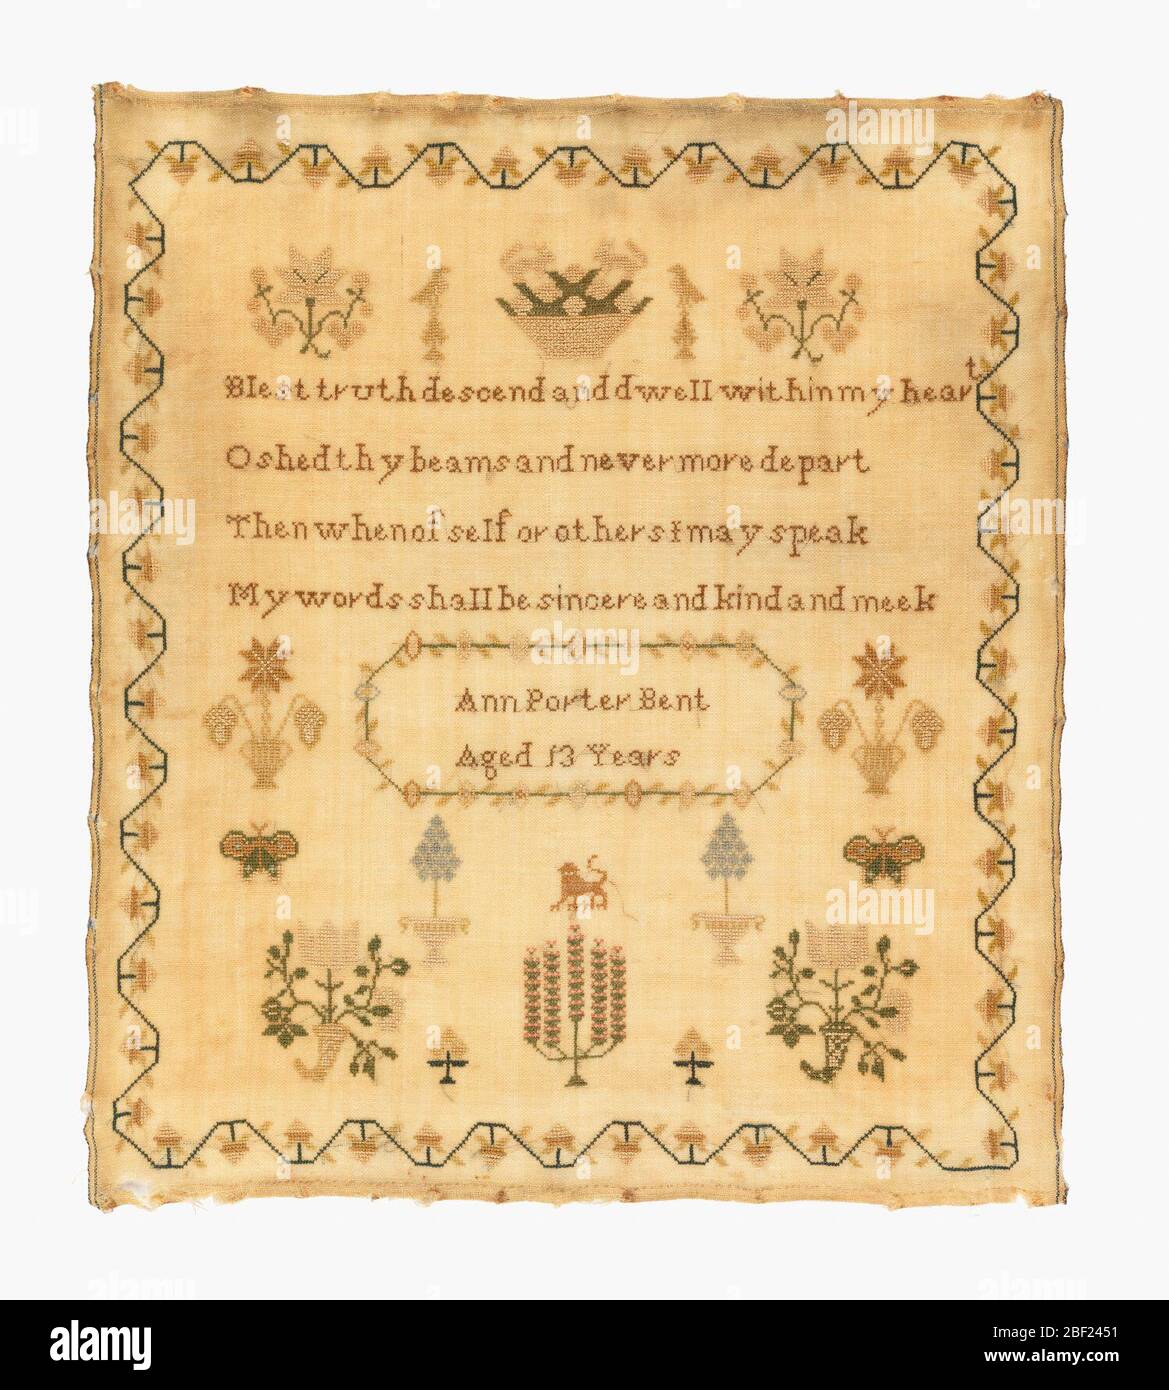 Blest truth descend and dwell within my heart
O shed thy beams and never more depart
Then when of self or others I may speak
My words shall be sincere and kind and meek
Ann Porter Bent
Aged 13 Years
alamy
Image ID: 2BF2451
www.alamy.com